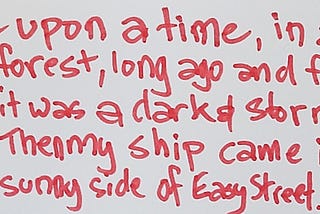 upon a time, in
forest, long ago and f
it was a dark & storm
Then my ship came i
sunny side of Easy Street.